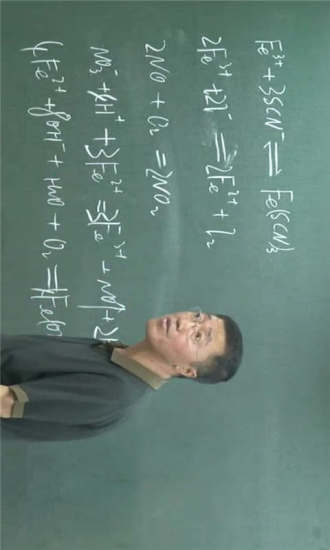 Fe³⁺ + 3SCN⁻ ⇌ Fe(SCN)₃
2Fe³⁺ + 2I⁻ = 2Fe²⁺ + I₂
2NO + O₂ = 2NO₂
NO₃⁻ + 4H⁺ + 3Fe²⁺ = 3Fe³⁺ + NO↑ + 2H
4Fe²⁺ + 8OH⁻ + 2H₂O + O₂ = 4Fe(O